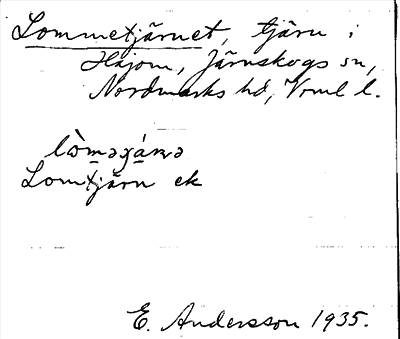 Lommetjärnet, tjärn i
Hajom, Järnskogs sn,
Nordmarks hd, Vrml l.
Lomtjärn ek
E. Andersson 1935.